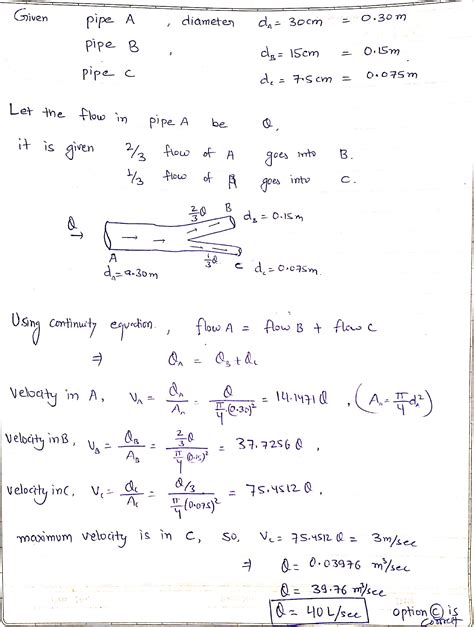 Given pipe A , diameter d_A = 30cm = 0.30m
pipe B , d_B = 15cm = 0.15m
pipe C d_c = 7.5cm = 0.075m
Let the flow in pipe A be Q.
it is given 2/3 flow of A goes into B.
1/3 flow of A goes into C.
Q → 2/3 Q B d_B = 0.15m
A 1/3 Q C d_c = 0.075m
d_A = 0.30m
Using continuity equation , flow A = flow B + flow C
⇒ Q_A = Q_B + Q_c
Velocity in A, V_A = Q_A/A_A = Q/(π/4 (0.30)²) = 14.1471 Q , (A_A = π/4 d_A²)
Velocity in B, V_B = Q_B/A_B = (2/3 Q)/(π/4 (0.15)²) = 37.7256 Q ,
velocity in C, V_c = Q_c/A_c = (Q/3)/(π/4 (0.075)²) = 75.4512 Q .
maximum velocity is in C, so, V_c = 75.4512 Q = 3m/sec
⇒ Q = 0.03976 m³/sec
Q = 39.76 m³/sec
Q = 40 L/sec option Ⓒ is correct